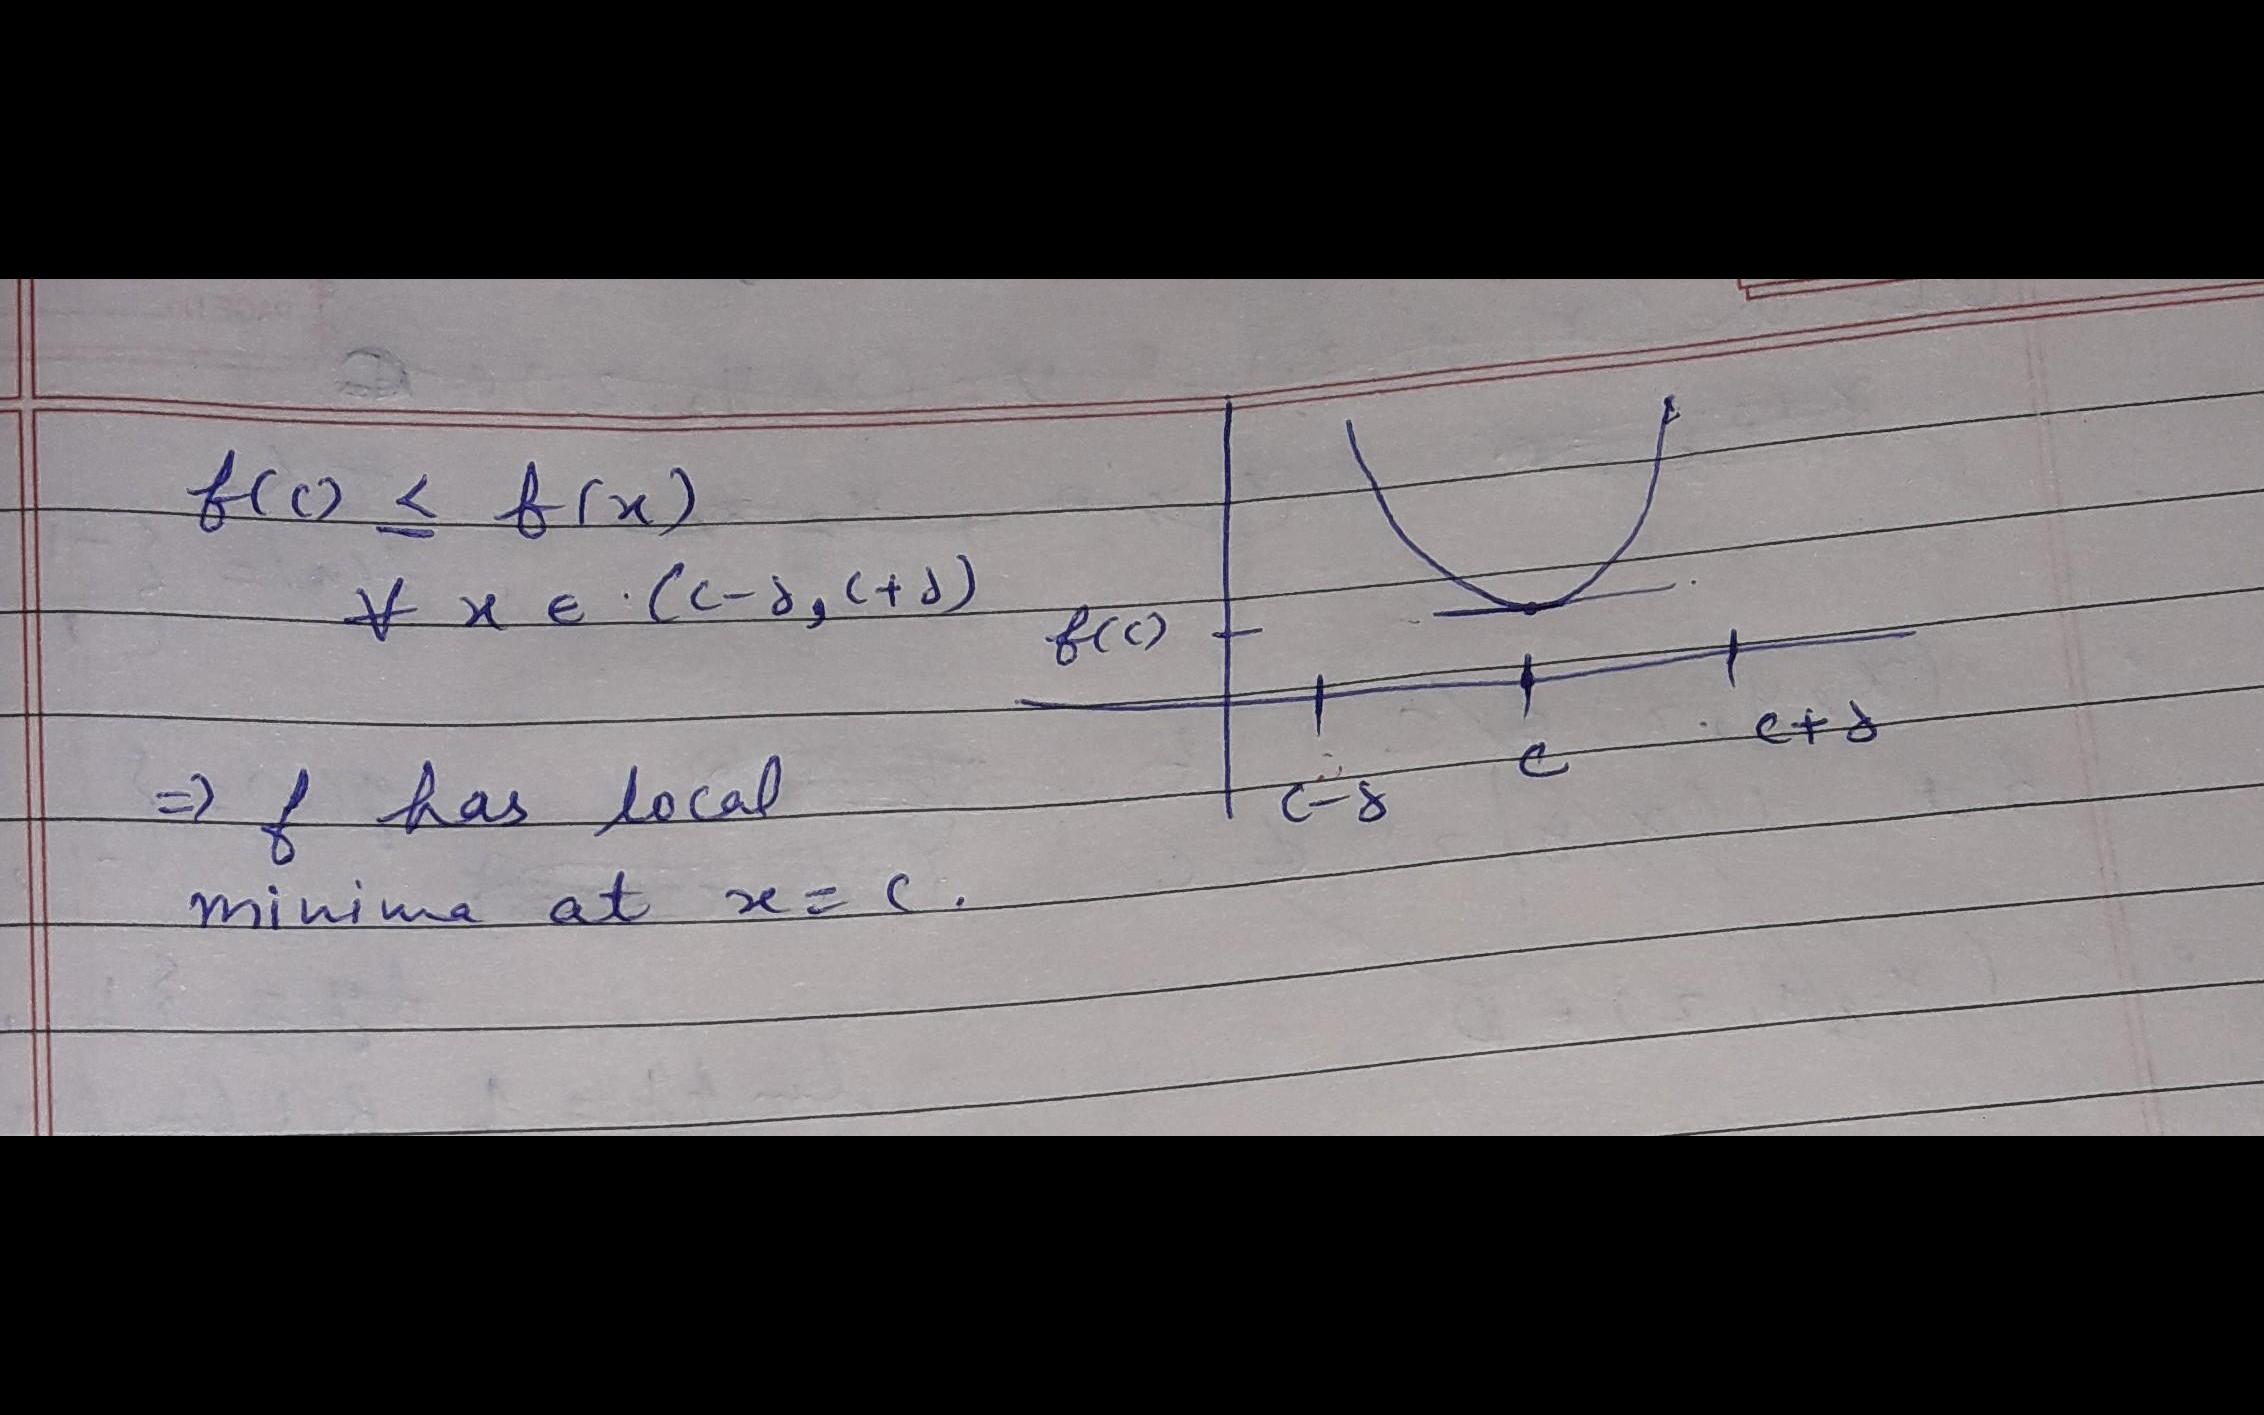 f(c) ≤ f(x)
∀ x ∈ (c-δ, c+δ)
f(c)
c-δ
c
c+δ
⇒ f has local
minima at x = c.